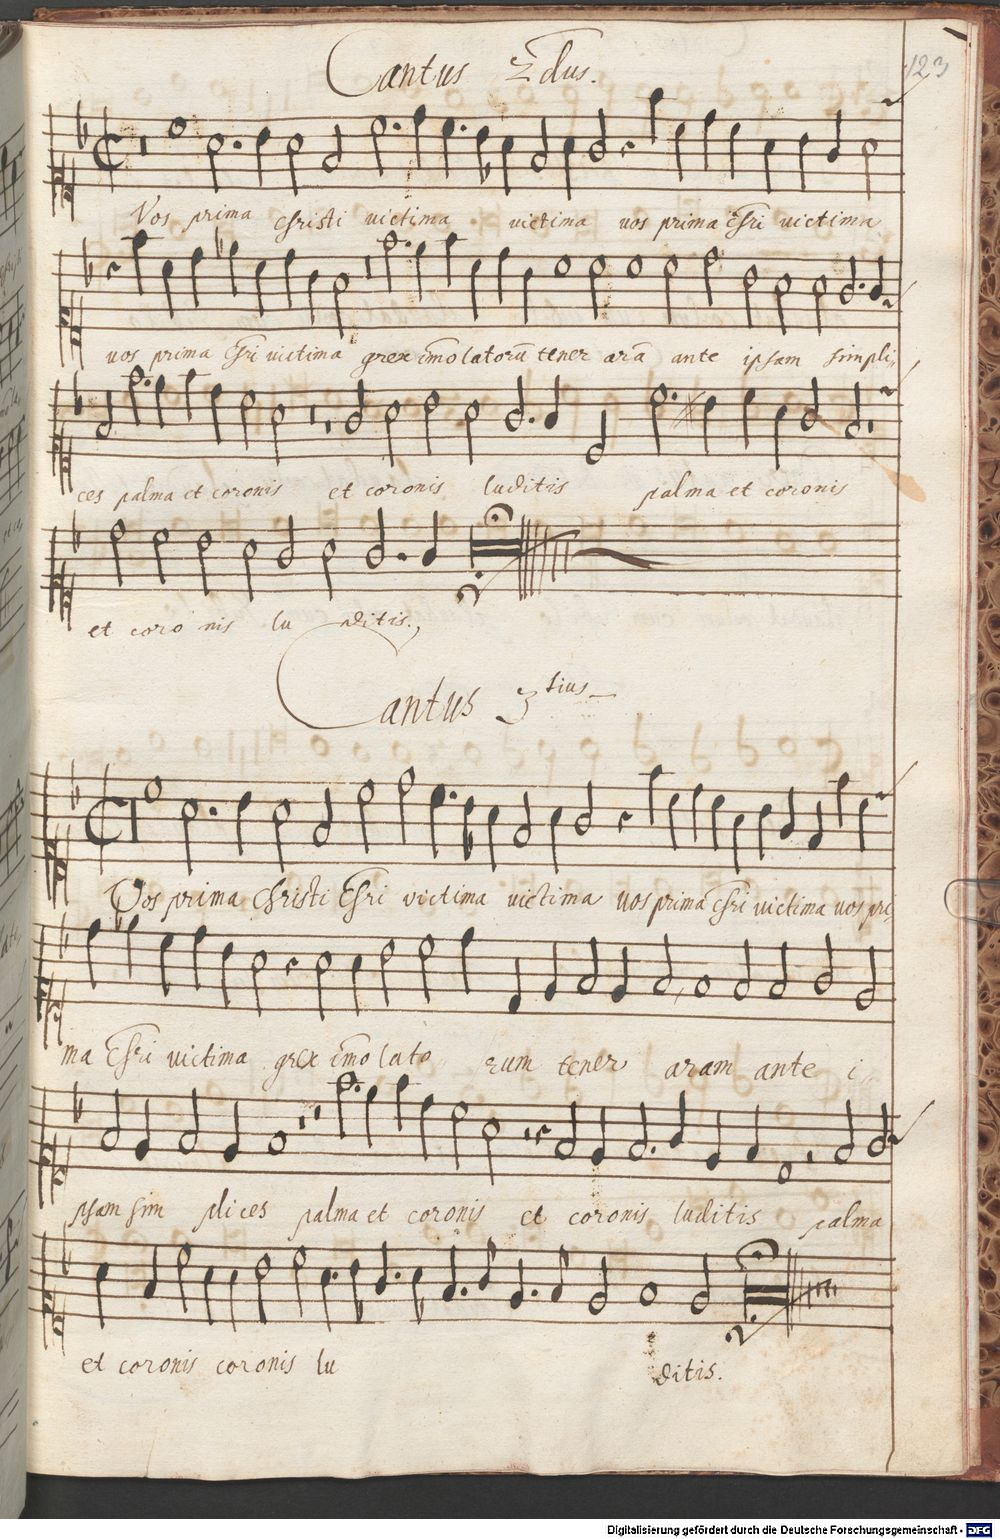 Cantus 2dus.
123
Vos prima Christi victima victima vos prima Chri victima
vos prima Chri victima grex im̄olatorū tener arā ante ipsam simpli,,
ces palma et coronis et coronis luditis palma et coronis
et coro nis lu ditis.
Cantus 3tius
Vos prima Christi Chri victima victima vos prima Chri victima vos pri,
ma Chri victima grex im̄olato rum tener aram ante i,,
psam sim plices palma et coronis et coronis luditis palma
et coronis coronis lu ditis.
Digitalisierung gefördert durch die Deutsche Forschungsgemeinschaft - DFG